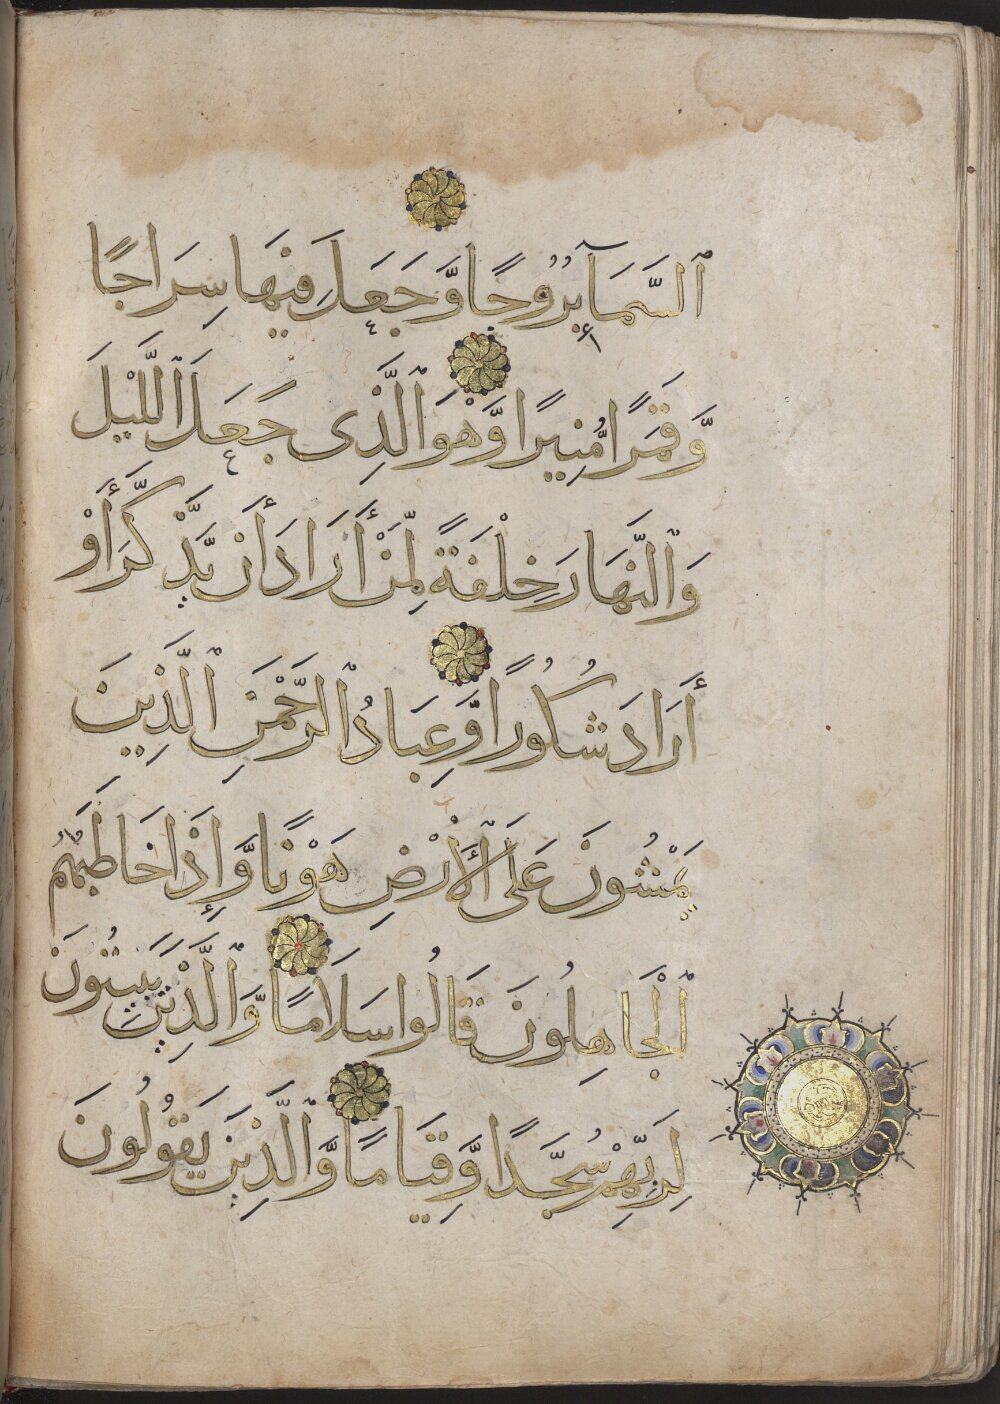 ٱلسَّمَآءِ بُرُوجًا وَّجَعَلَ فِيهَا سِرَاجًا
وَّقَمَرًا مُّنِيرًا وَّهْوَ ٱلَّذِى جَعَلَ ٱللَّيْلَ
وَٱلنَّهَارَ خِلْفَةً لِّمَنْ أَرَادَ أَن يَذَّكَّرَ أَوْ
أَرَادَ شُكُورًا وَّعِبَادُ ٱلرَّحْمَنِ ٱلَّذِينَ
يَمْشُونَ عَلَى ٱلْأَرْضِ هَوْنًا وَّإِذَا خَاطَبَهُمُ
ٱلْجَاهِلُونَ قَالُوا سَلَامًا وَّٱلَّذِينَ يَبِيتُونَ
لِرَبِّهِمْ سُجَّدًا وَّقِيَامًا وَّٱلَّذِينَ يَقُولُونَ